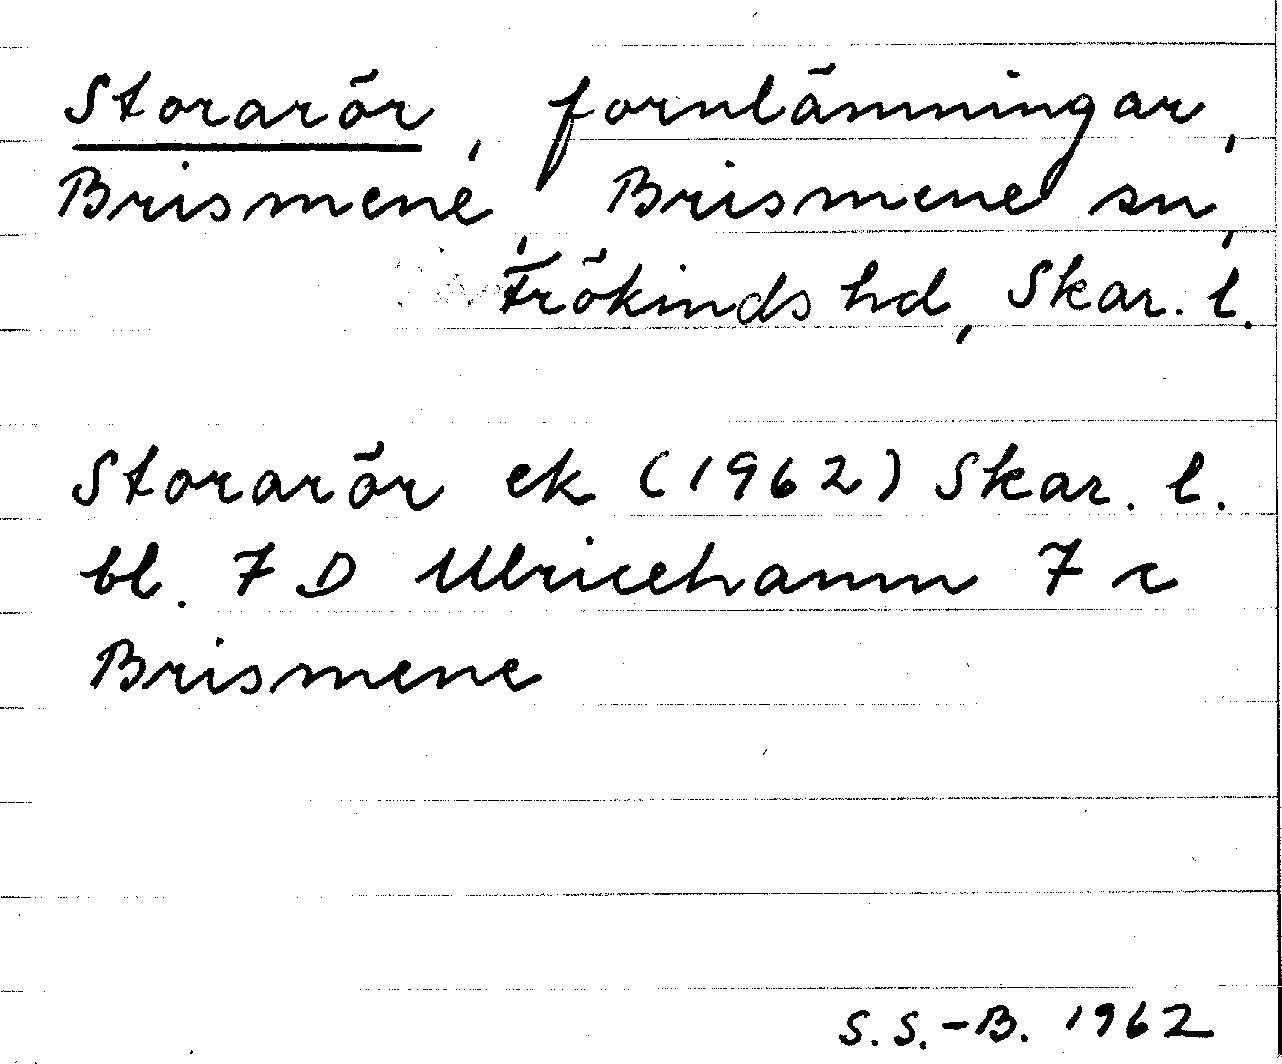 Storarör, fornlämningar,
Brismene, Brismene sn,
Frökinds hd, Skar. l.
Storarör ek (1962) Skar. l.
bl. 7 D Ulricehamn 7 c
Brismene
S. S.-B. 1962